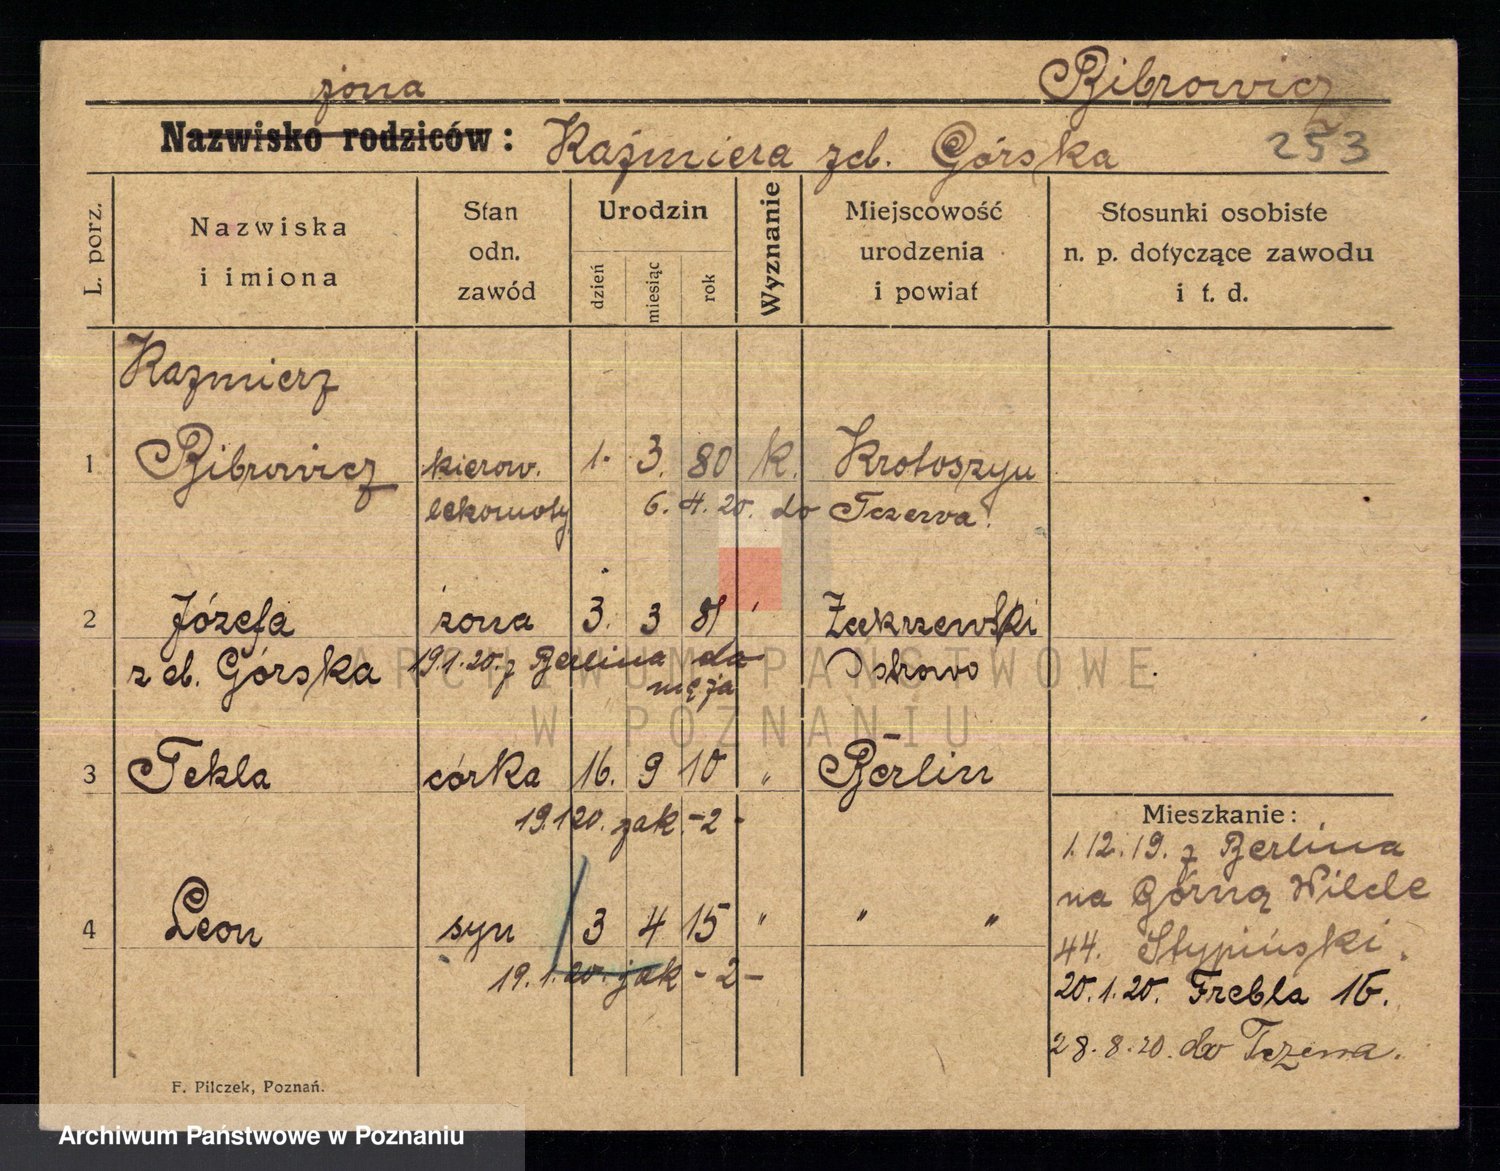 żona
Bibrowicz
Nazwisko rodziców:
Kaźmiera zeb. Górska
253
L. porz.
Nazwiska
i imiona
Stan
odn.
zawód
Urodzin
dzień
miesiąc
rok
Wyznanie
Miejscowość
urodzenia
i powiat
Stosunki osobiste
n. p. dotyczące zawodu
i t. d.
Kazmierz
1 Bibrowicz kierow. 1. 3. 80 k. Krotoszyn
lokomoty 6. 4. 20. do Tczewa.
2 Józefa żona 3. 3 81 " Zakrzewski
z eb. Górska 19.1.20. z Berlina do Ostrowo
męża
3 Tekla córka 16. 9 10 " Berlin
19.1.20. jak -2-
Mieszkanie:
1.12.19. z Berlina
na Górną Wilde
44. Stypiński.
20.1.20. Frebla 16.
28.8.20. do Tczewa.
4 Leon syn 3 4 15 " " "
19.1.20. jak -2-
F. Pilczek, Poznań.
ARCHIWUM PAŃSTWOWE
W POZNANIU
Archiwum Państwowe w Poznaniu